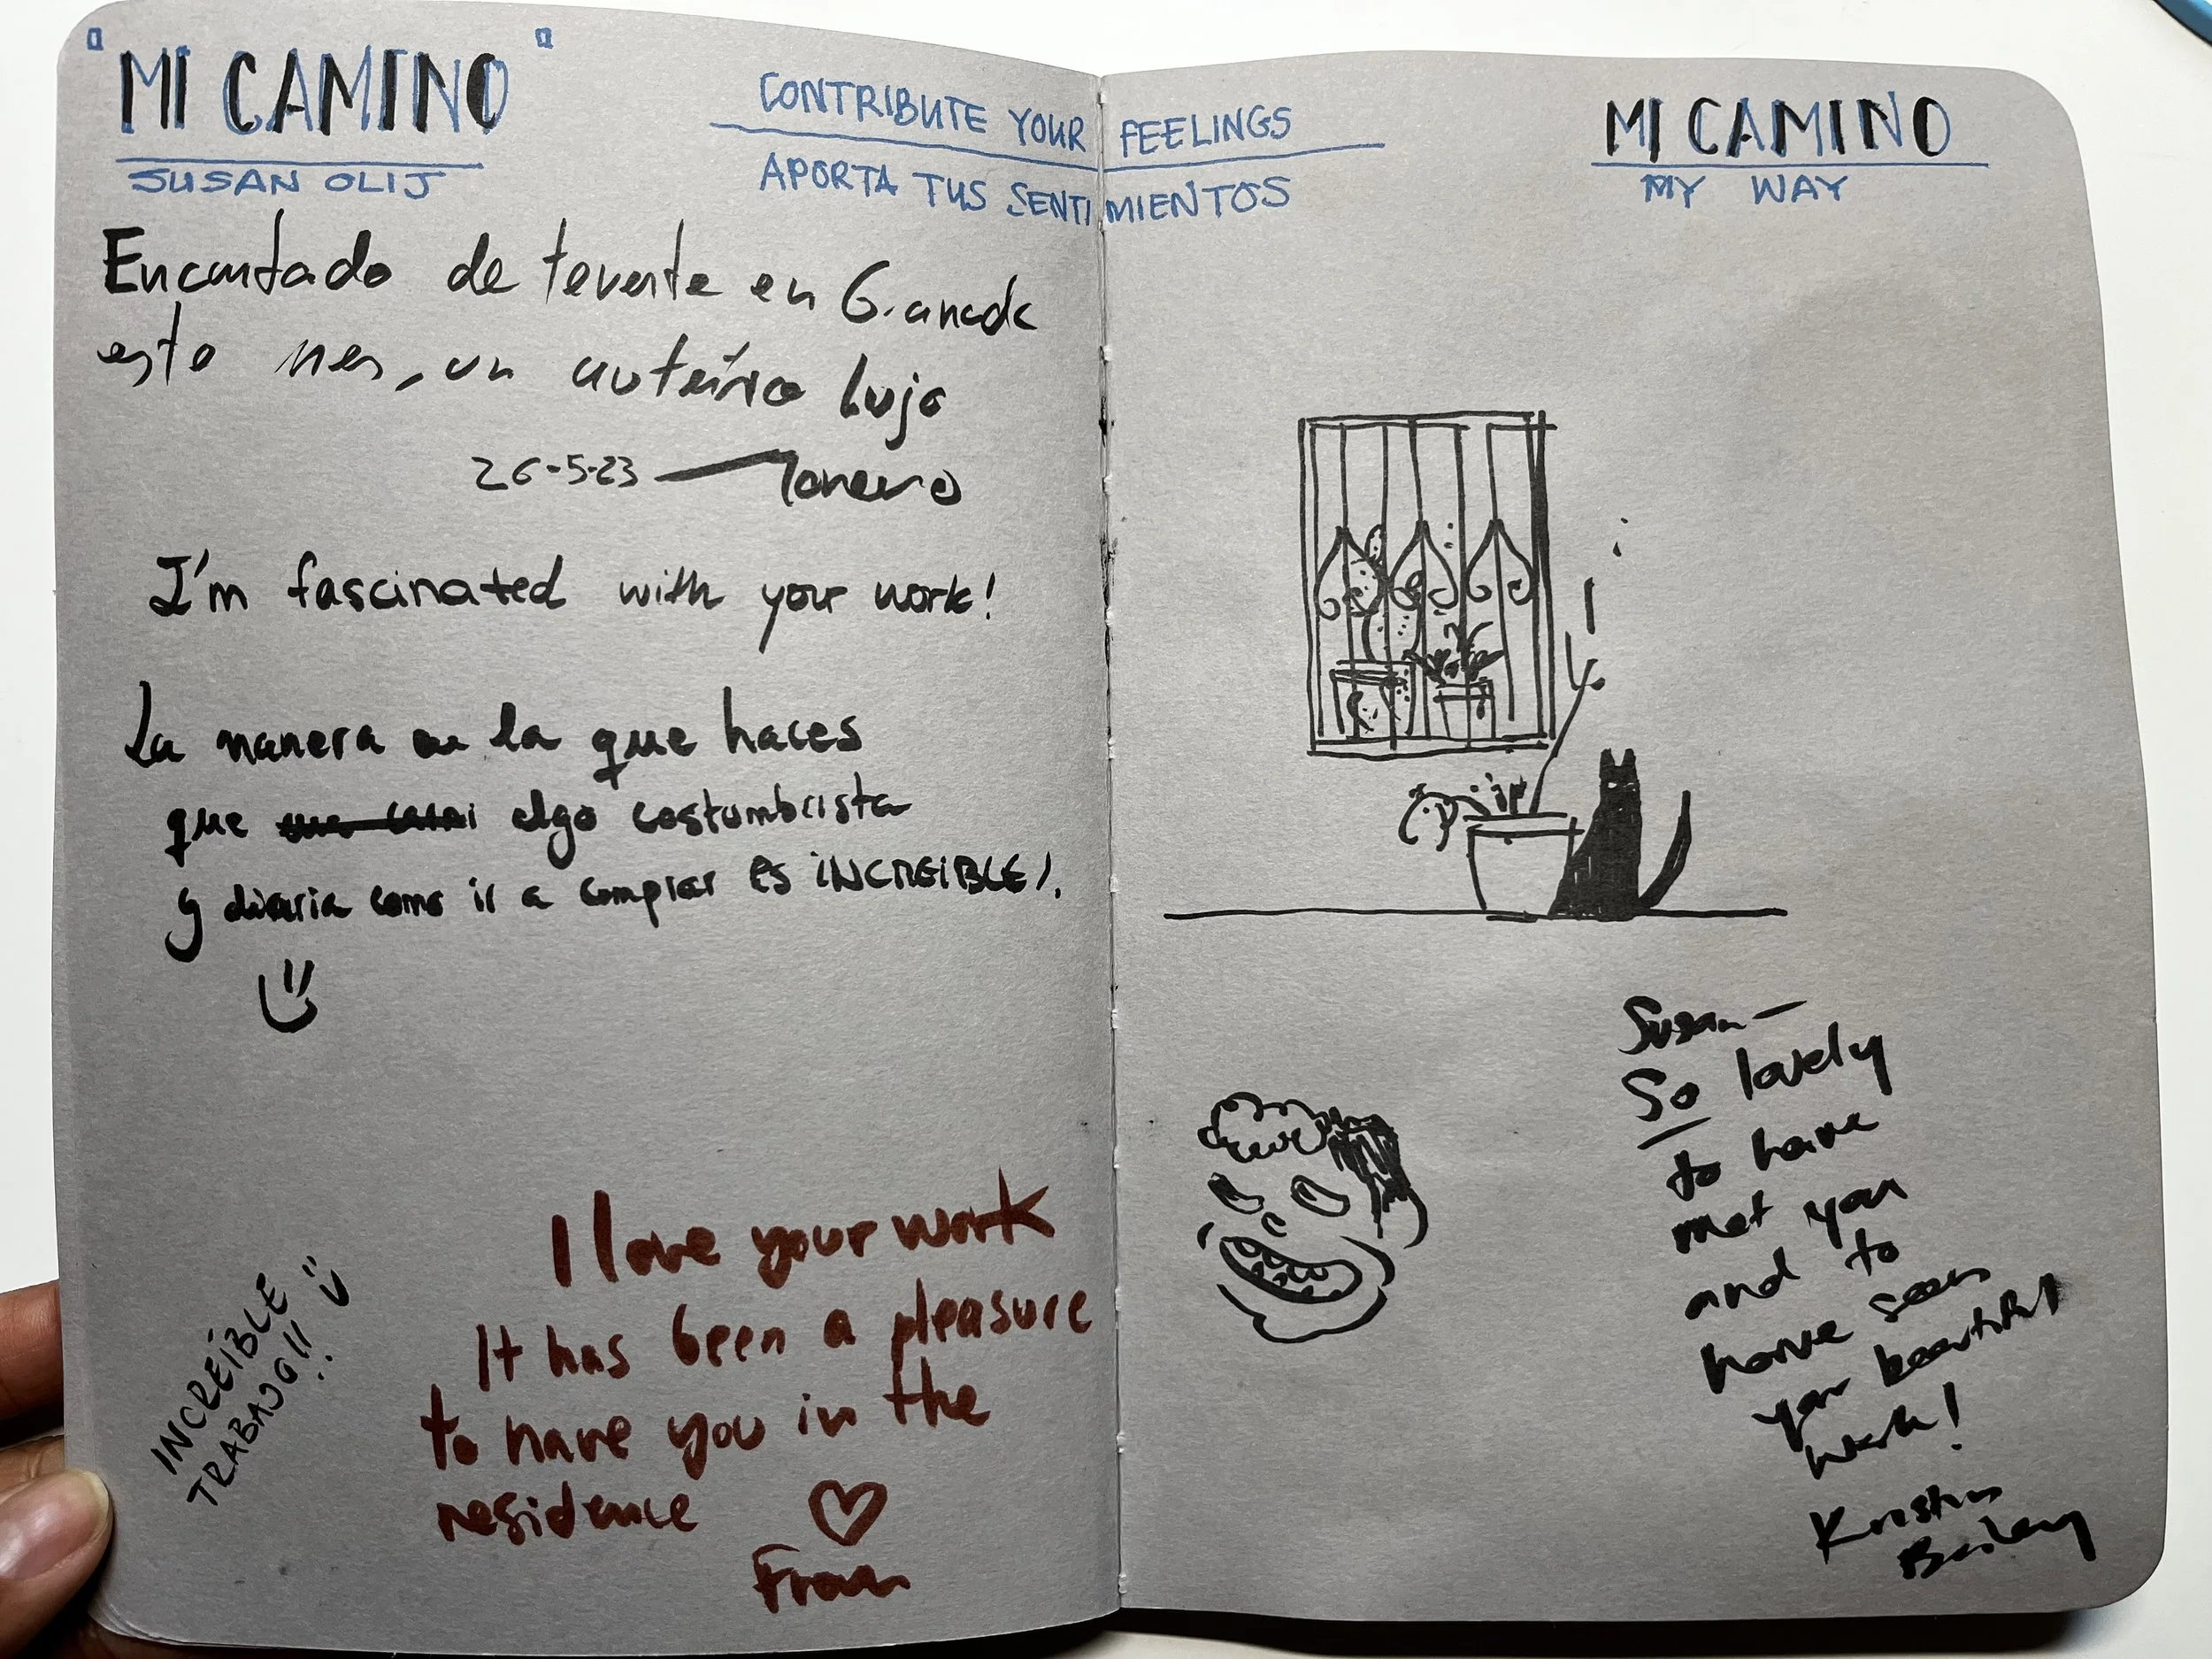 "MI CAMINO"
SUSAN OLIJ
CONTRIBUTE YOUR FEELINGS
APORTA TUS SENTIMIENTOS
Encantado de tenerte en Granada
este mes, un auténtico lujo
26-5-23
I'm fascinated with your work!
La manera en la que haces
que algo costumbrista
y diaria como ir a comprar ES INCREIBLE!.
INCREÍBLE
TRABAJO!!
I love your work
It has been a pleasure
to have you in the
residence
Fran
MI CAMINO
MY WAY
Susan—
So lovely
to have
met you
and to
have seen
your beautiful
work!
Bailey